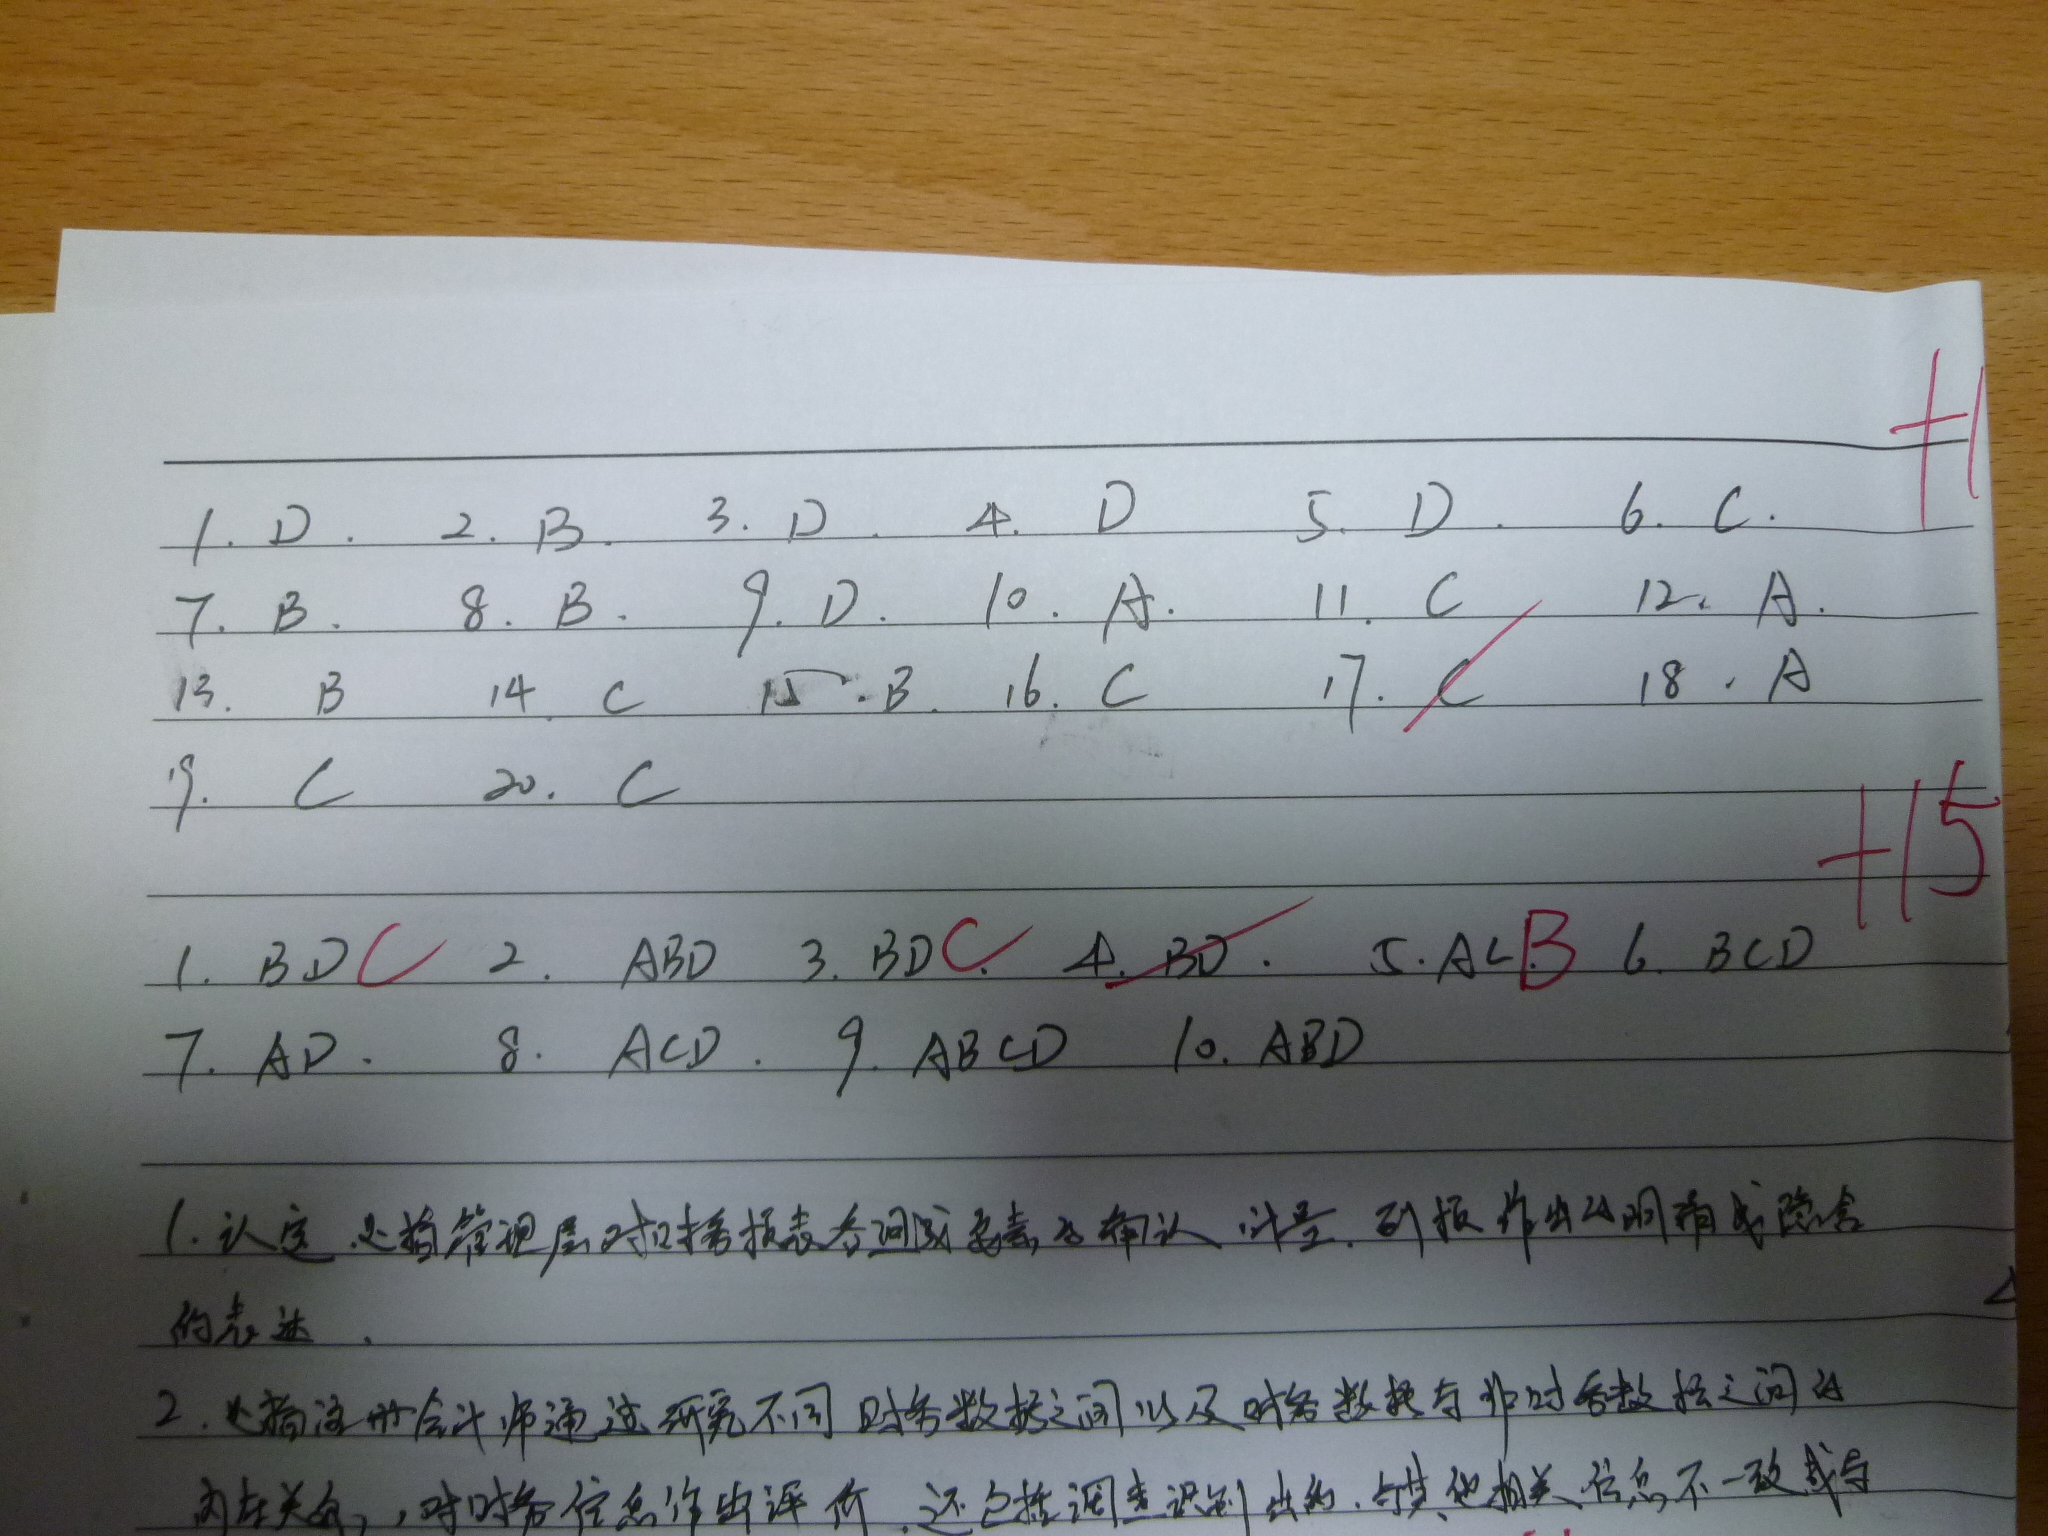 +1
1. D. 2. B. 3. D. 4. D 5. D. 6. C.
7. B. 8. B. 9. D. 10. A. 11. C 12. A.
13. B 14. C 15. B. 16. C 17. C 18. A
19. C 20. C
+15
1. BDC 2. ABD 3. BDC. 4. BD. 5. ACB 6. BCD
7. AD. 8. ACD. 9. ABCD 10. ABD
1. 认定是指管理层对财务报表各组成要素的确认、计量、列报作出的明确或隐含
的表达.
2. 是指注册会计师通过研究不同财务数据之间以及财务数据与非财务数据之间的
内在关系,对财务信息作出评价.还包括调查识别出的、与其他相关信息不一致或与